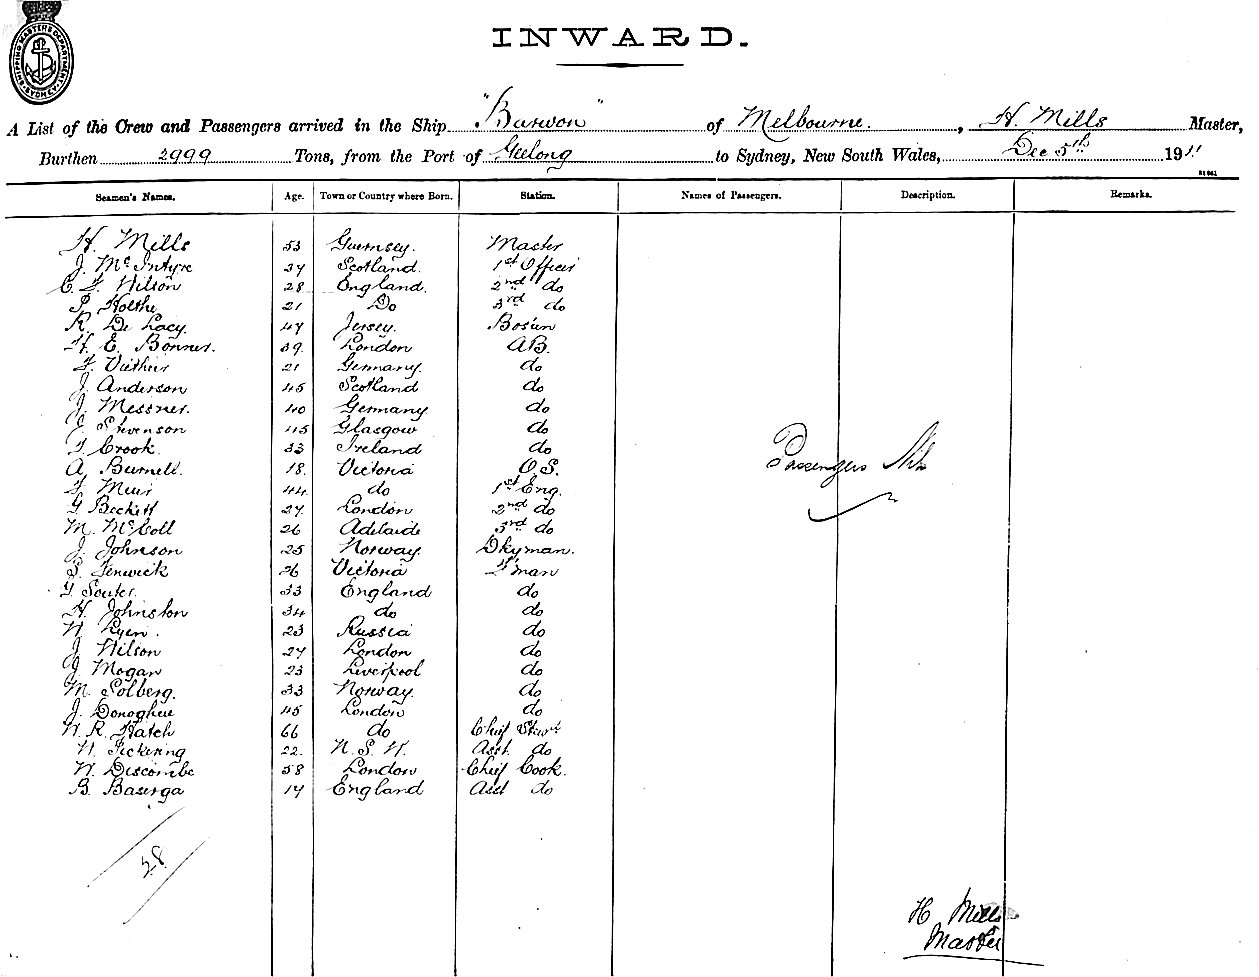 SHIPPING MASTERS DEPARTMENT SYDNEY
INWARD.
A List of the Crew and Passengers arrived in the Ship "Barwon" of Melbourne. , H. Mills Master,
Burthen 2999 Tons, from the Port of Geelong to Sydney, New South Wales, Dec 5th 1911
Seamen's Names. Age. Town or Country where Born. Station. Names of Passengers. Description. Remarks.
H. Mills 53 Guernsey. Master
J. McIntyre 37 Scotland. 1st Officer
C. F. Wilson 28 England. 2nd do
P. Holthe 21 Do 3rd do
R. De Lacy. 47 Jersey. Bosun
H. E. Bonner. 39. London AB.
F. 21 Germany. do
J. Anderson 45 Scotland do
J. Messner. 40 Germany do
E. Stevenson 45 Glasgow do
F. Crook. 33 Ireland do
A. Burnell. 18. Victoria O.S.
F. Muir 44. do 1st Eng.
G. Beckett 27 London 2nd do
M. McColl 26 Adelaide 3rd do
J. Johnson 25 Norway. Dkyman.
S. Fenwick 26 Victoria F'man
G. Souter. 33 England do
H. Johnston 34 do do
W. 23 Russia do
J. Wilson 27 London do
J. Mogan 23 Liverpool do
M. Solberg. 33 Norway. do
J. Donoghue 45 London do
W. R. Hatch 66 do Chief Stewd
W. Pickering 22. N. S. W. Asst. do
W. Discombe 58 London Chief Cook.
B. Baserga 17 England Asst do
Passengers Nil
28
H Mills
Master